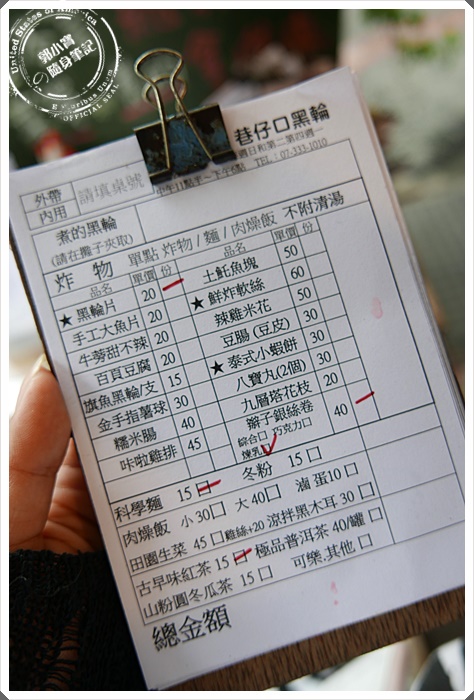 United States of America
郭小寶
の隨身筆記
E Pluribus Unum
OFFICIAL SEAL
巷仔口黑輪
週日和第二第四週一
中午11點半~下午6點 TEL:07-333-1010
外帶
內用 請填桌號
煮的黑輪
(請在攤子夾取)
單點 炸物 / 麵 / 肉燥飯 不附清湯
炸 物
品名 單價 份 品名 單價 份
★黑輪片 20 土魠魚塊 50
手工大魚片 20 ★鮮炸軟絲 60
牛蒡甜不辣 20 辣雞米花 50
百頁豆腐 20 豆腸(豆皮) 30
旗魚黑輪/支 15 ★泰式小蝦餅 30
金手指薯球 30 八寶丸(2個) 30
糯米腸 40 九層塔花枝 20
咔啦雞排 45 辮子銀絲卷 40
綜合口 巧克力口
煉乳口
科學麵 15口 冬粉 15口
肉燥飯 小30口 大40口 滷蛋10口
田園生菜 45口 雞絲+20 涼拌黑木耳 30口
古早味紅茶 15口 極品普洱茶 40/罐口
山粉圓冬瓜茶 15口 可樂.其他口
總金額